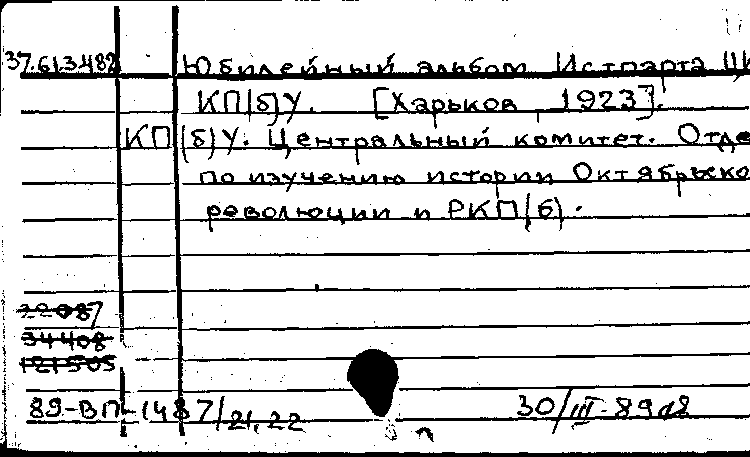 37.613.482 Юбилейный альбом Истпарта Ц
КП(б)У. [Харьков, 1923].
КП(б)У. Центральный комитет. Отде
по изучению истории Октябрьско
революции и РКП(б).
32087
34408
121505
89-ВП-1487/21,22 30/III-89